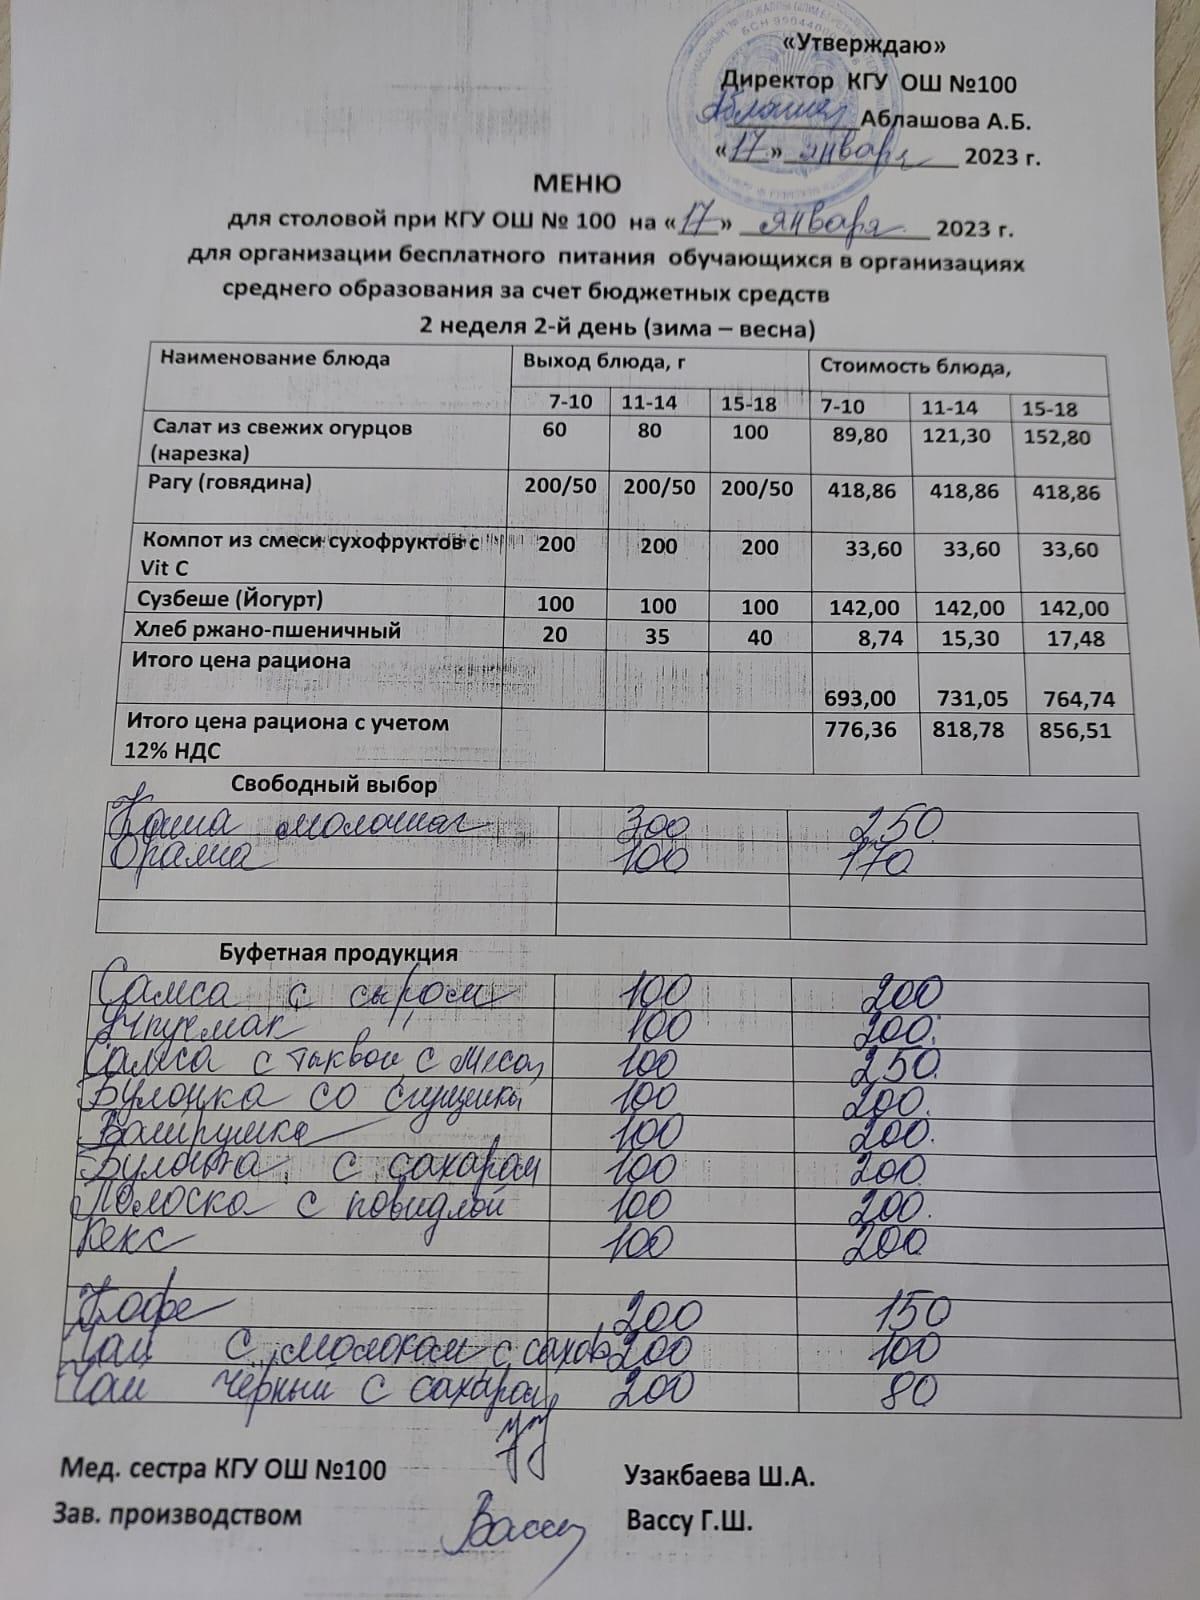 «Утверждаю»
Директор КГУ ОШ №100
Аблашова А.Б.
«17» января 2023 г.
МЕНЮ
для столовой при КГУ ОШ № 100 на «17» января 2023 г.
для организации бесплатного питания обучающихся в организациях
среднего образования за счет бюджетных средств
2 неделя 2-й день (зима – весна)
Наименование блюда Выход блюда, г Стоимость блюда,
7-10 11-14 15-18 7-10 11-14 15-18
Салат из свежих огурцов 60 80 100 89,80 121,30 152,80
(нарезка)
Рагу (говядина) 200/50 200/50 200/50 418,86 418,86 418,86
Компот из смеси сухофруктов с 200 200 200 33,60 33,60 33,60
Vit C
Сузбеше (Йогурт) 100 100 100 142,00 142,00 142,00
Хлеб ржано-пшеничный 20 35 40 8,74 15,30 17,48
Итого цена рациона
693,00 731,05 764,74
Итого цена рациона с учетом 776,36 818,78 856,51
12% НДС
Свободный выбор
Каша молочная 300 250
Орама 100 170
Буфетная продукция
Самса с сыром 100 200
Учпучмак 100 200.
Самса с тыквой, с мясом 100 250.
Булочка со сгущенкой 100 200.
Ватрушка 100 200.
Булочка с сахаром 100 200
Полоска с повидлой 100 200.
Кекс 100 200
Кофе 200 150
Чай с молоком с сахаром 200 100
Чай чёрный с сахаром 200 80
Мед. сестра КГУ ОШ №100 Узакбаева Ш.А.
Зав. производством Вассу Вассу Г.Ш.